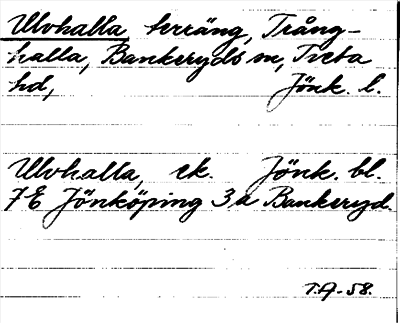 Ulvhalla, terräng, Trång-
halla, Bankeryds sn, Tveta
hd, Jönk. l.
Ulvhalla, ek. Jönk. bl.
7 E Jönköping 3 a Bankeryd.
T.A-58.